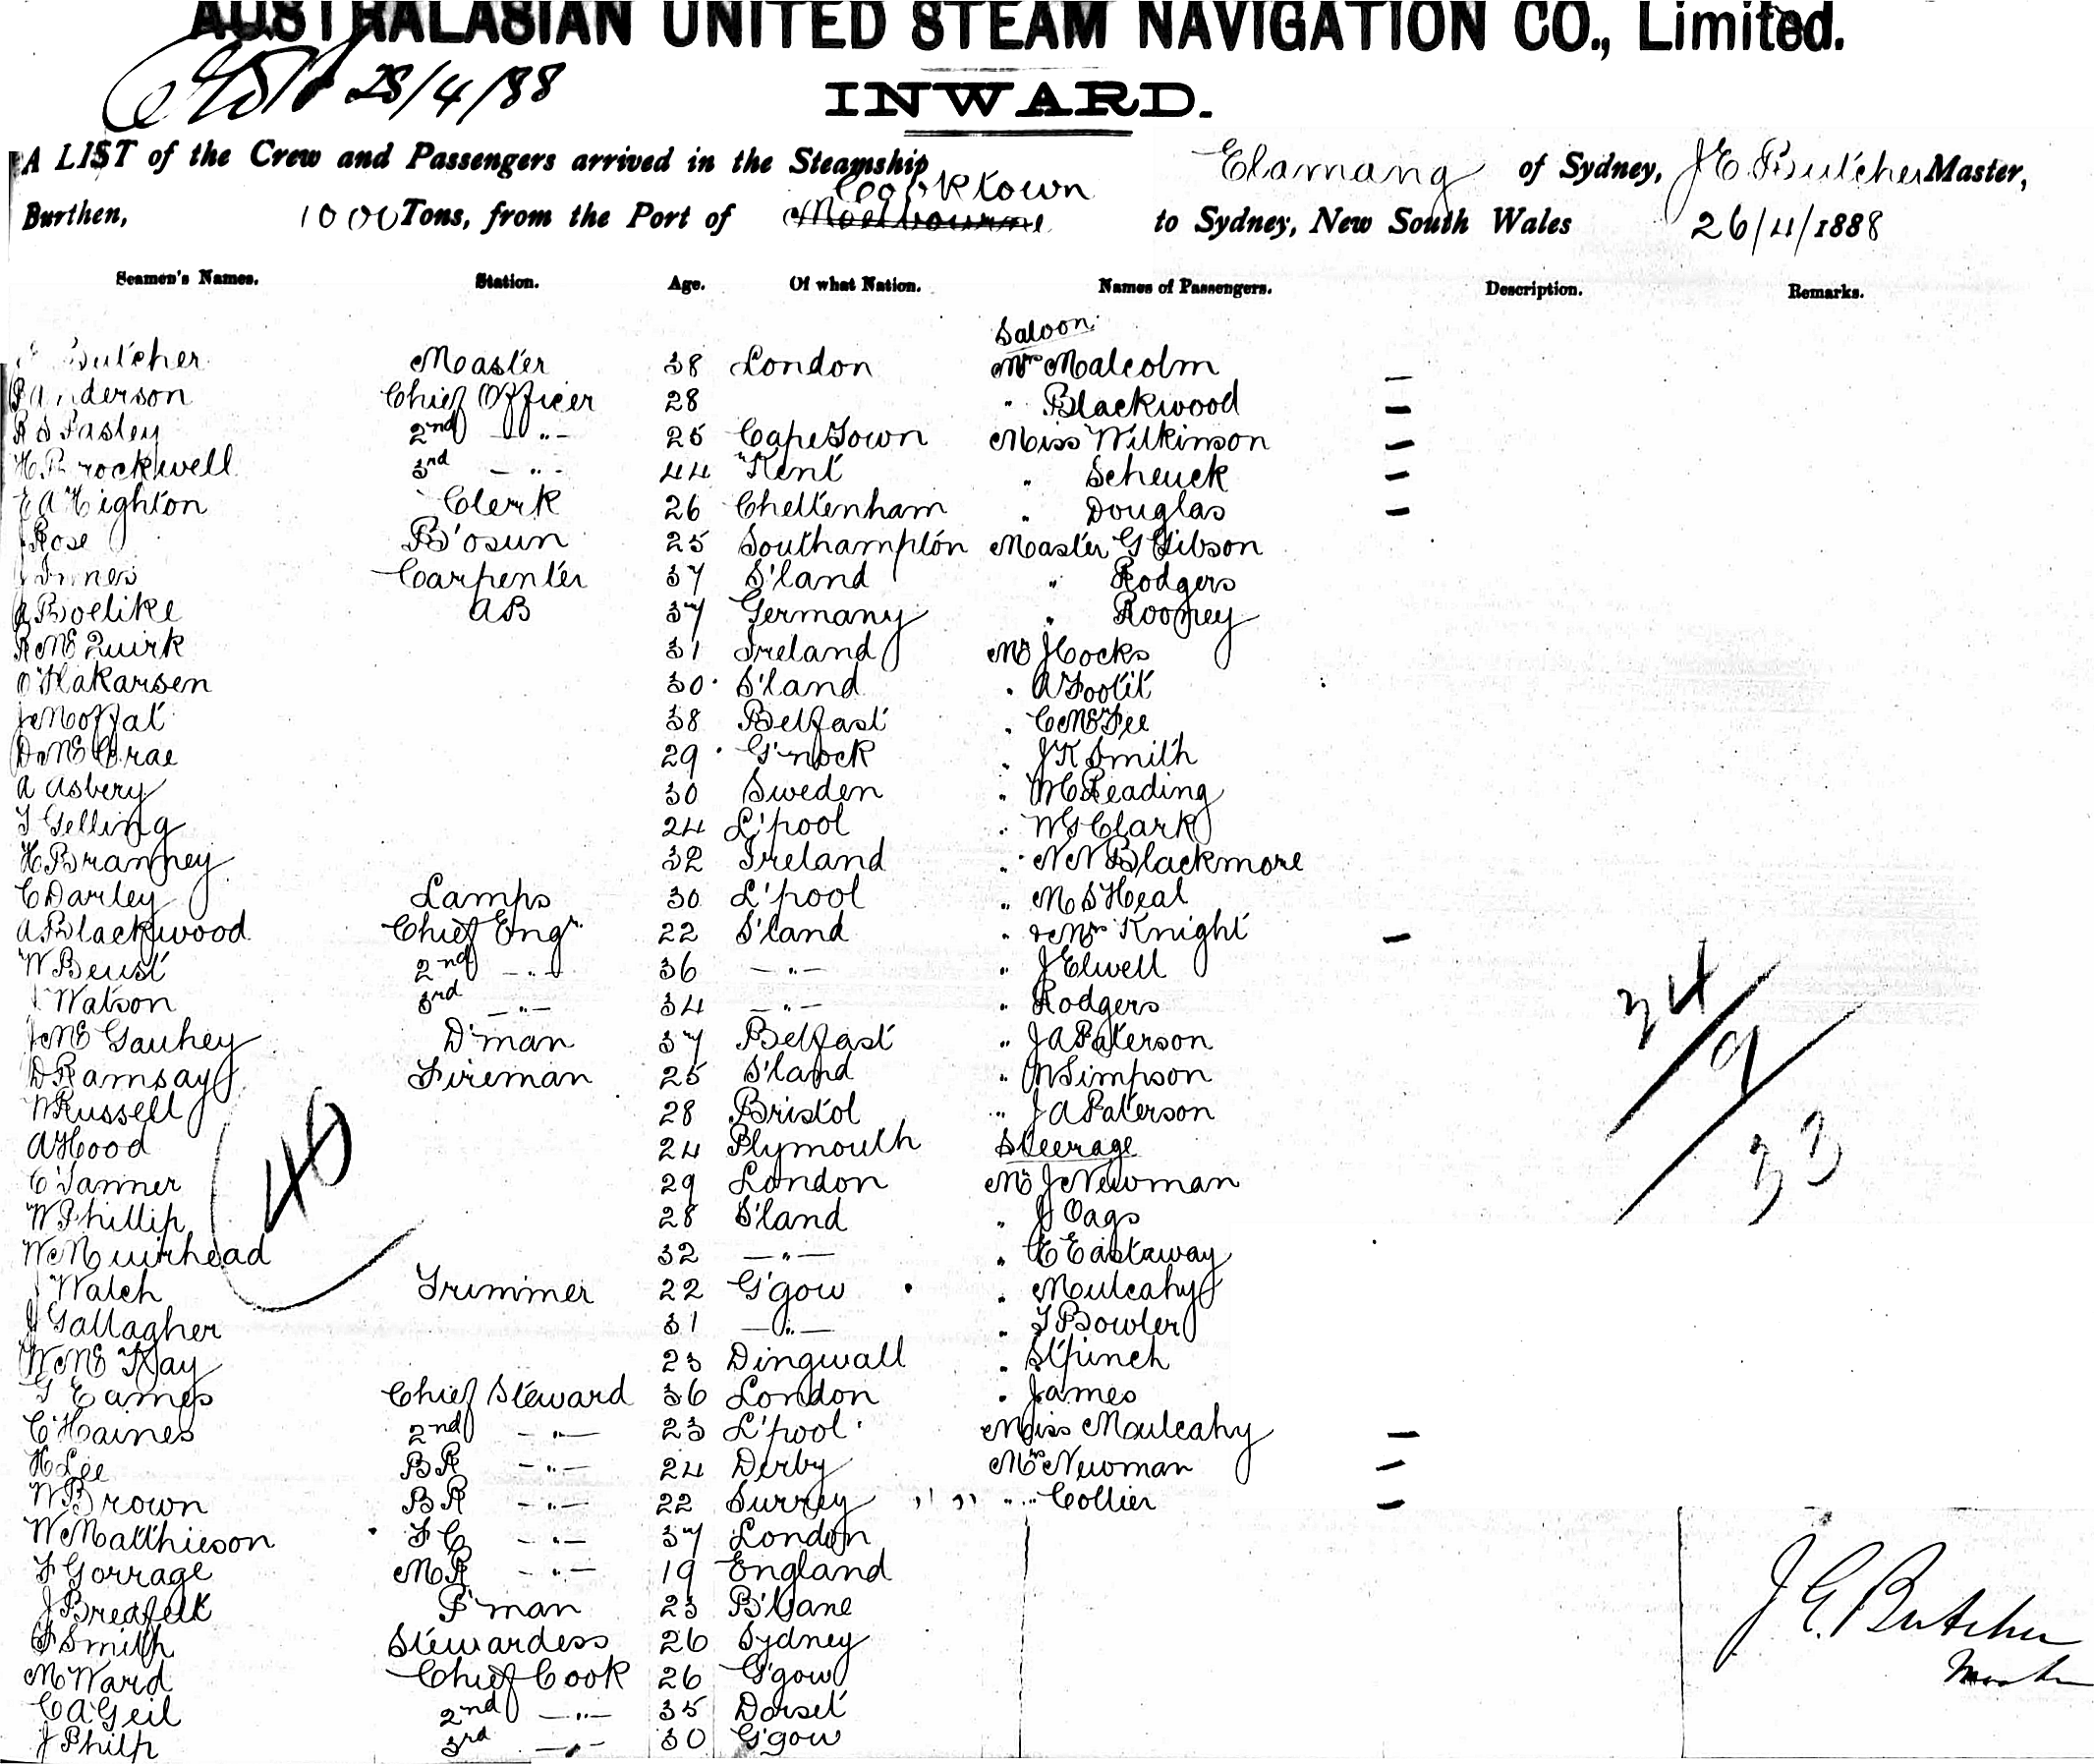 AUSTRALASIAN UNITED STEAM NAVIGATION CO., Limited.
28/4/88
INWARD.
A LIST of the Crew and Passengers arrived in the Steamship Elamang of Sydney, J E Butcher Master,
Cooktown
Burthen, 1000 Tons, from the Port of Melbourne to Sydney, New South Wales 26/4/1888
Seamen's Names. Station. Age. Of what Nation. Names of Passengers. Description. Remarks.
Saloon
Butcher Master 38 London Mrs Malcolm —
Anderson Chief Officer 28 " Blackwood —
R S Pasley 2nd — " — 25 CapeTown Miss Wilkinson —
H Brockwell 3rd — " — 44 Kent " Scheuck —
E A Highton Clerk 26 Cheltenham " Douglas —
J Rose B'osun 25 Southampton Master G Gibson
J Innes Carpenter 37 S'land " Rodgers
A Boelike AB 37 Germany " Rooney
R McQuirk 31 Ireland Mr J Cocks
O Hakarsen 30 S'land " A Footit
J Moffat 38 Belfast " C McFee
D McCrae 29 G'nock " J K Smith
A Asbery 30 Sweden " Reading
T Gelling 24 L'pool " W G Clark
H Branney 32 Ireland " N N Blackmore
C Darley Lamps 30 L'pool " M S Heal
A Blackwood Chief Engr 22 S'land " & Mrs Knight —
W Beust 2nd — " — 36 — " — " J Elwell
J Watson 3rd — " — 34 — " — " Rodgers
J McGauhey D'man 37 Belfast " J A Paterson
D Ramsay Fireman 25 S'land " M Simpson
W Russell 28 Bristol " J A Paterson
A Hood 24 Plymouth Steerage
C Tanner 29 London Mr J Newman
W Phillip 28 S'land " J Oags
W Muirhead 32 — " — " E Eastaway
J Walch Trimmer 22 G'gow " Mulcahy
J Gallagher 31 — " — " T Bowler
W McKay 23 Dingwall "
G Eames Chief Steward 36 London " James
C Haines 2nd — " — 23 L'pool Miss Mulcahy —
H Lee BR — " — 24 Derby Mrs Newman —
W Brown BR — " — 22 Surrey " " Collier —
W Matthieson FC — " — 37 London
F Gorrage MR — " — 19 England
J Bredfelt P'man 23 B'bane
F Smith Stewardess 26 Sydney
M Ward Chief Cook 26 G'gow
C A Geil 2nd — " — 35 Dorset
J Philp 3rd — " — 30 G'gow
40
24/9/33
J E Butcher
Master